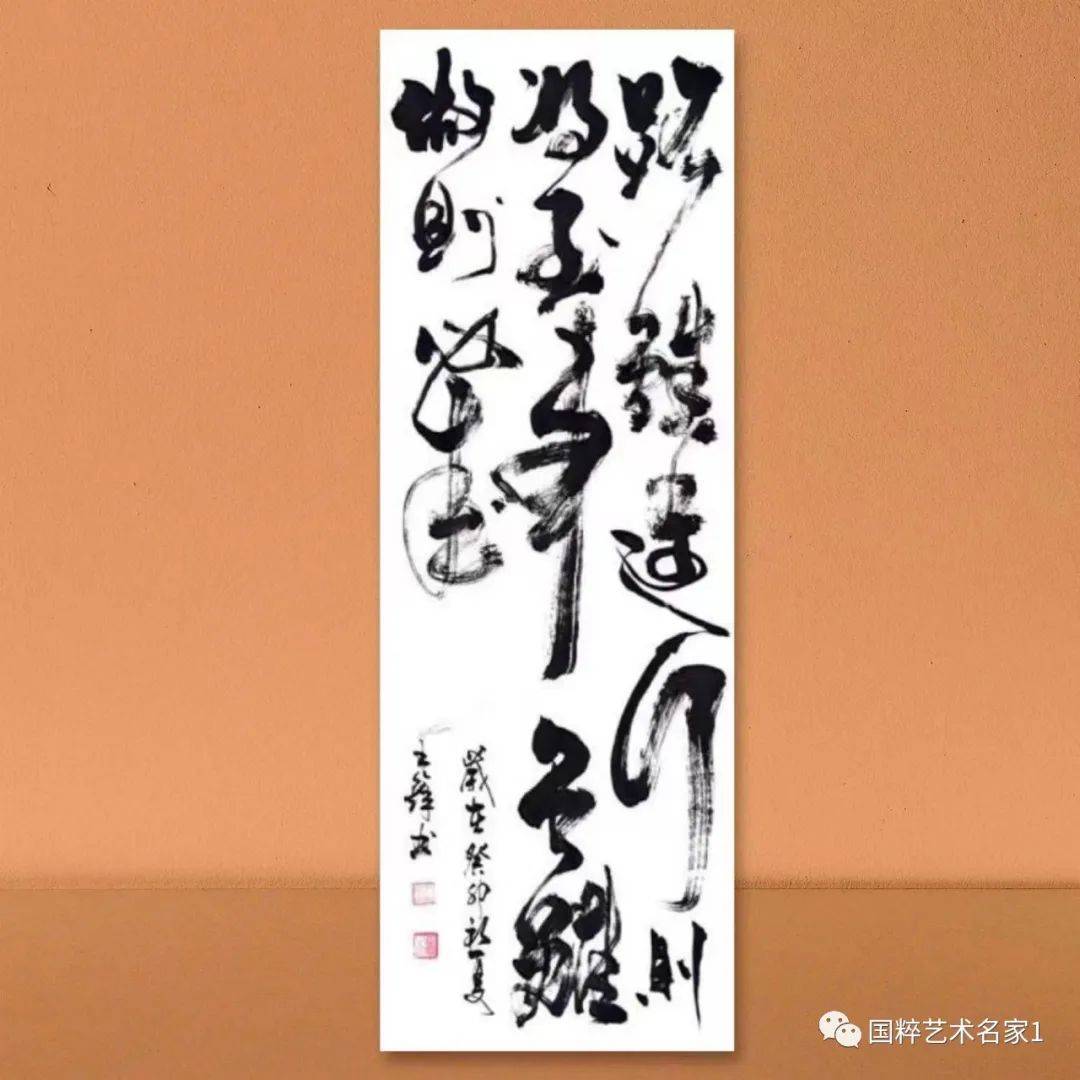 路雖遠行则
将至事虽難
做则必成
歲在癸卯初夏
王 书
国粹艺术名家1